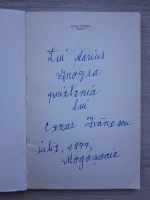 Lui Marius
Dnogea
prietenia
lui
Cezar Ivănescu
iulie, 1999,
Mogoșoaia